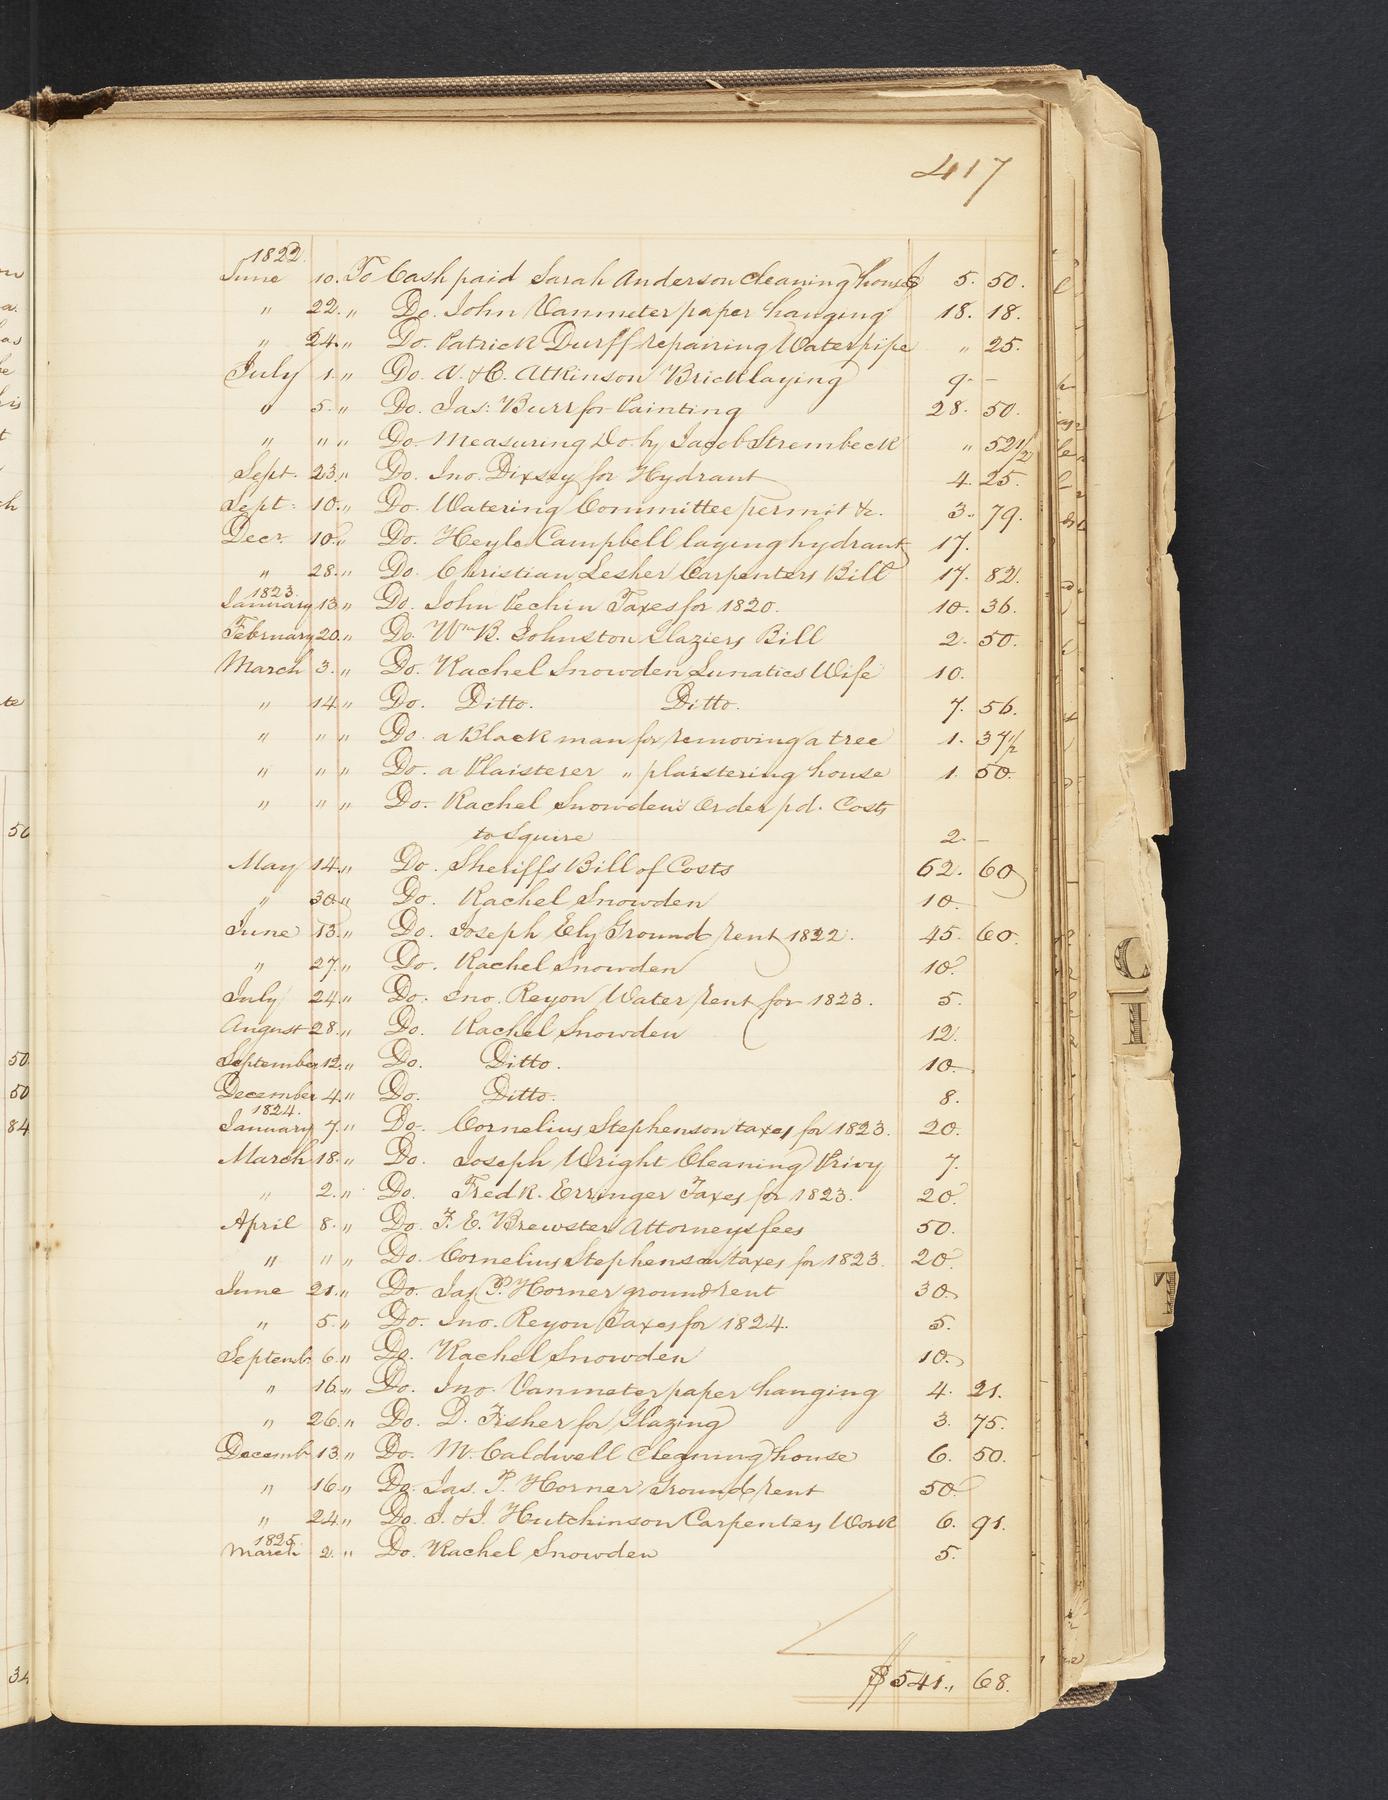 417
1822.
June 10. To Cash paid Sarah Anderson cleaning house $ 5. 50.
" 22. " Do. John Vanmeter paper hanging 18. 18.
" 24. " Do. Patrick Durff repairing Water pipe " 25.
July 1. " Do. N. & C. Atkinson Bricklaying 9. –
" 5. " Do. Jas: Burr for Painting 28. 50.
" " " Do. Measuring Do. by Jacob Strembeck " 52 1/2
Sept. 23. " Do. Jno. Dixsey for Hydrant 4. 25.
Sept. 10. " Do. Watering Committee permit &c. 3. 79.
Decr. 10. " Do. Heyle Campbell laying hydrant 17.
" 28. " Do. Christian Lesher Carpenters Bill 17. 82.
1823.
January 13. " Do. John Pechin Taxes for 1820. 10. 36.
February 20. " Do. Wm. B. Johnston Glaziers Bill 2. 50.
March 3. " Do. Rachel Snowden Lunatics Wife 10.
" 14. " Do. Ditto. Ditto. 7. 56.
" " " Do. a Black man for removing a tree 1. 37 1/2
" " " Do. a Plaisterer " plaistering house 1. 50.
" " " Do. Rachel Snowden's Order pd. Costs
to Squire 2. –
May 14. " Do. Sheriffs Bill of Costs 62. 60
" 30. " Do. Rachel Snowden 10.
June 13. " Do. Joseph Ely Ground rent 1822. 45. 60.
" 27. " Do. Rachel Snowden 10.
July 24. " Do. Jno. Reyon Water rent for 1823. 5.
August 28. " Do. Rachel Snowden 12.
September 12. " Do. Ditto. 10.
December 4. " Do. Ditto. 8.
1824.
January 7. " Do. Cornelius Stephenson taxes for 1823. 20.
March 18. " Do. Joseph Wright Cleaning Privy 7.
" 2. " Do. Fredk. Erringer Taxes for 1823. 20.
April 8. " Do. F. E. Brewster Attorneys fees 50.
" " " Do. Cornelius Stephenson taxes for 1823. 20.
June 21. " Do. Jas. P. Horner ground rent 30.
" 5. " Do. Jno. Reyon Taxes for 1824. 5.
Septemb. 6. " Do. Rachel Snowden 10.
" 16. " Do. Jno. Vanmeter paper hanging 4. 21.
" 26. " Do. D. Fisher for Glazing 3. 75.
Decemb. 13. " Do. M. Caldwell Cleaning house 6. 50.
" 16. " Do. Jas. P. Horner Ground rent 50.
" 24. " Do. J. & J. Hutchinson Carpenters Work 6. 91.
1825.
March 2. " Do. Rachel Snowden 5.
$ 541. " 68.
50
50
84